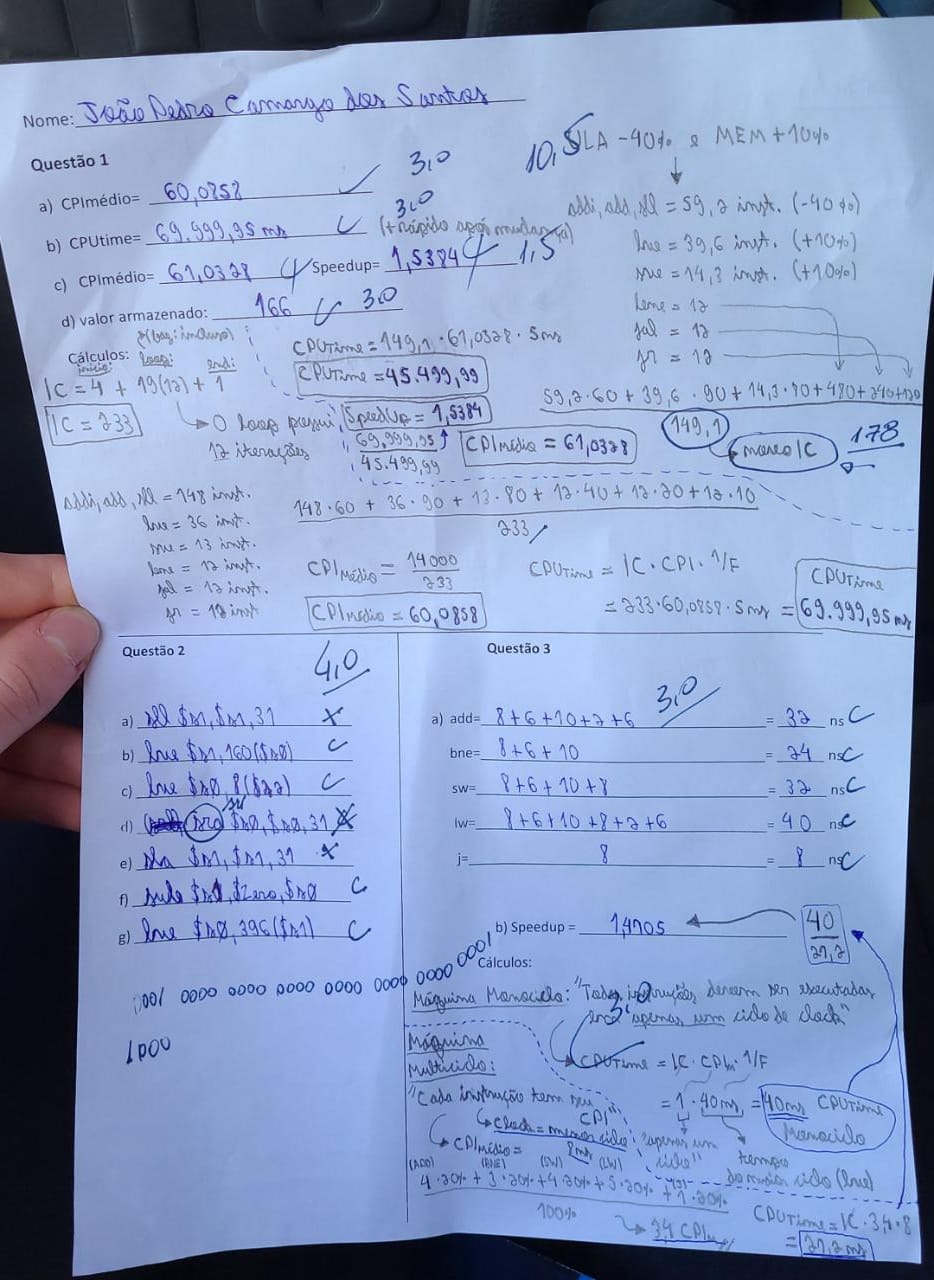 Nome: João Pedro Camargo dos Santos
Questão 1
a) CPImédio= 60,0858
3,0
b) CPUtime= 69.999,95 ms
3,0
(+rápido após mudança)
c) CPImédio= 61,0328 Speedup= 1,5384
1,5
d) valor armazenado: 166
3,0
10,5
ULA -40% e MEM +10%
addi, add, sll = 59,2 inst. (-40%)
lw = 39,6 inst. (+10%)
sw = 14,3 inst. (+10%)
bne = 12
jal = 12
jr = 12
59,2·60 + 39,6·90 + 14,3·80 + 480 + 240 + 120
149,1
novo IC
178
Cálculos:
início: loop: end:
IC = 4 + 19(12) + 1
IC = 233
O loop possui
12 iterações
CPUTime = 149,1·61,0328·5ns
CPUTime = 45.499,99
SpeedUp = 1,5384
69.999,95
45.499,99
CPImédio = 61,0328
addi, add, sll = 148 inst.
lw = 36 inst.
sw = 13 inst.
bne = 12 inst.
jal = 12 inst.
jr = 12 inst
148·60 + 36·90 + 13·80 + 12·40 + 12·20 + 12·10
233
CPIMédio = 14000
233
CPIMédio = 60,0858
CPUTime = IC · CPI · 1/F
= 233·60,0858·5ns =
CPUTime
69.999,95 ms
Questão 2
4,0
a) sll $s1, $s1, 31
b) lw $s1, 160($s0)
c) lw $s0, 8($s2)
d) sra $s0, $s0, 31
e) sla $s1, $s1, 31
f) sub $s1, $zero, $s0
g) lw $s0, 396($s1)
1001 0000 0000 0000 0000 0000 0000 0001
1000
Questão 3
3,0
a) add= 8+6+10+2+6 = 32 ns
bne= 8+6+10 = 24 ns
sw= 8+6+10+8 = 32 ns
lw= 8+6+10+8+2+6 = 40 ns
j= 8 = 8 ns
b) Speedup = 1,4705
40
27,2
Cálculos:
Máquina Monociclo: "Todas instruções devem ser executadas
em apenas um ciclo de clock"
3,0
CPUTime = IC · CPI · 1/F
= 1 · 40ns = 40ns CPUTime
Monociclo
"apenas um
ciclo"
tempo
do maior ciclo (lw)
Máquina
Multiciclo:
"Cada instrução tem seu
CPI"
Clock = menor ciclo
8ns
CPIMédio =
(ADD) (BNE) (SW) (LW) (J)
4·20% + 3·20% + 4·20% + 5·20% + 1·20%
100%
3,4 CPI
CPUTime = IC · 3,4 · 8
= 27,2 ns